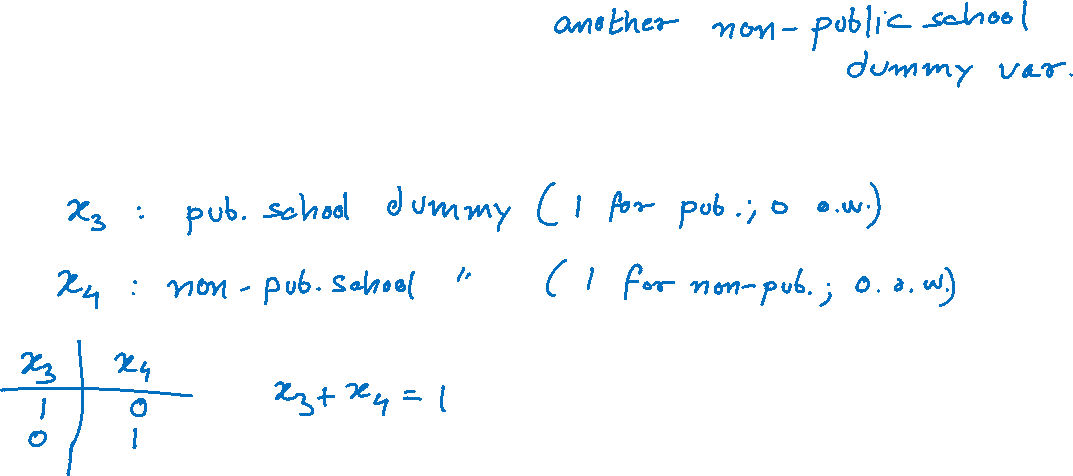 another non-public school
dummy var.
x₃ : pub. school dummy ( 1 for pub.; 0 o.w.)
x₄ : non-pub. school " ( 1 for non-pub.; 0. o.w.)
x₃ | x₄
1 | 0
0 | 1
x₃ + x₄ = 1